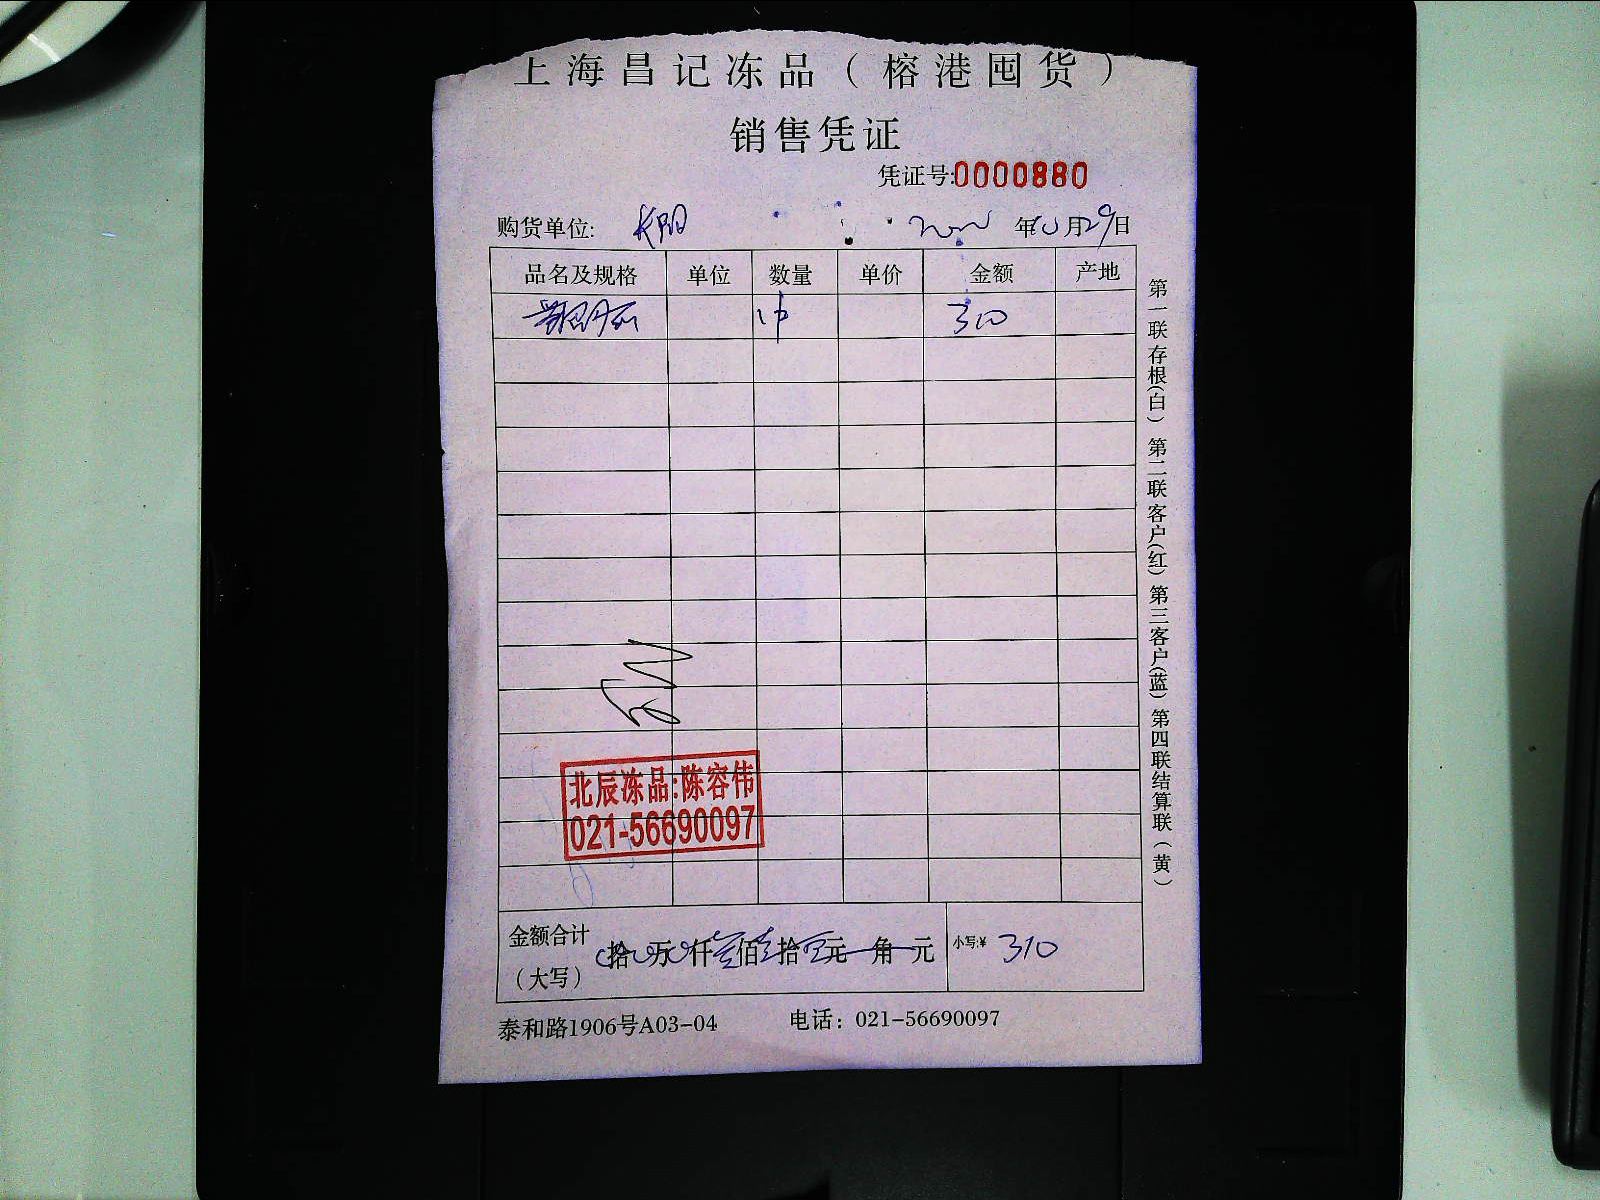 上海昌记冻品（榕港囤货）
销售凭证
凭证号:0000880
购货单位: 长阳 年10月29日
品名及规格 单位 数量 单价 金额 产地
1件 310
北辰冻品:陈容伟
021-56690097
金额合计（大写） 拾 万 仟 叁佰 壹拾 元 角 元 小写:¥ 310
泰和路1906号A03-04 电话：021-56690097
第一联存根(白) 第二联客户(红) 第三客户(蓝) 第四联结算联（黄）